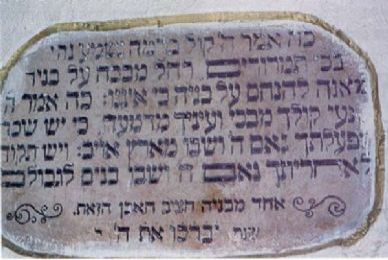 כה אמר ה' קול ברמה נשמע נהי
בכי תמרורים רחל מבכה על בניה
מאנה להנחם על בניה כי איננו: כה אמר ה'
מנעי קולך מבכי ועיניך מדמעה כי יש שכר
לפעלתך נאם ה' ושבו מארץ אויב: ויש תקוה
לאחריתך נאם ה' ושבו בנים לגבולם
אחד מבניה הציב האבן הזאת.
שנת יברכו את ה'